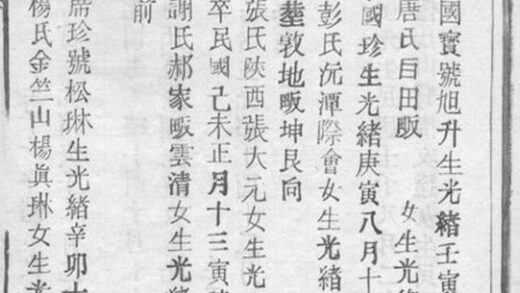 國寶號旭升生光緒壬寅
唐氏目田畈 女生光緒
國珍生光緒庚寅八月十
彭氏沅潭際會女生光緒
塟敦地畈坤艮向
張氏陜西張大元女生光
卒民國己未正月十三寅
謝氏郝家畈雲清女生光緒
前
席珍號松琳生光緒辛卯十
楊氏金竺山楊眞琳女生光